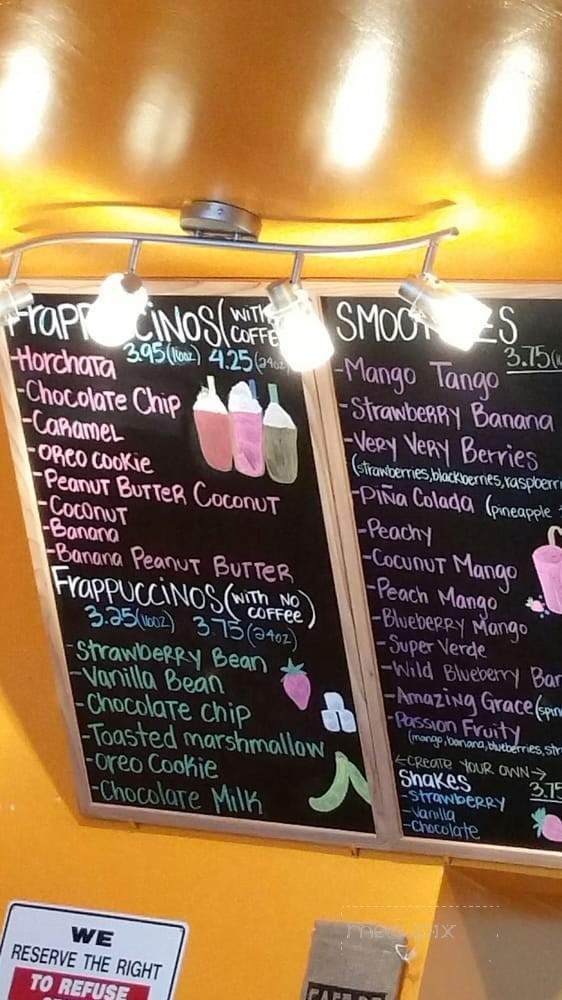 FRAPPUCCINOS (WITH COFFEE
3.95 (16oz) 4.25 (24oz)
-Horchata
-Chocolate Chip
-Caramel
-Oreo Cookie
-Peanut Butter Coconut
-Coconut
-Banana
-Banana Peanut Butter
Frappuccinos (with no coffee)
3.25 (16oz) 3.75 (24oz)
-Strawberry Bean
-Vanilla Bean
-Chocolate Chip
-Toasted marshmallow
-Oreo Cookie
-Chocolate Milk
SMOOTHIES
3.75
-Mango Tango
-Strawberry Banana
-Very Very Berries
(strawberries, blackberries, raspberri
-Piña Colada (pineapple +
-Peachy
-Cocunut Mango
-Peach Mango
-Blueberry Mango
-Super Verde
-Wild Blueberry Ban
-Amazing Grace (spin
-Passion Fruity
(mango, banana, blueberries, str
←CREATE YOUR OWN→
Shakes 3.75
-Strawberry
-Vanilla
-Chocolate
WE
RESERVE THE RIGHT
TO REFUSE